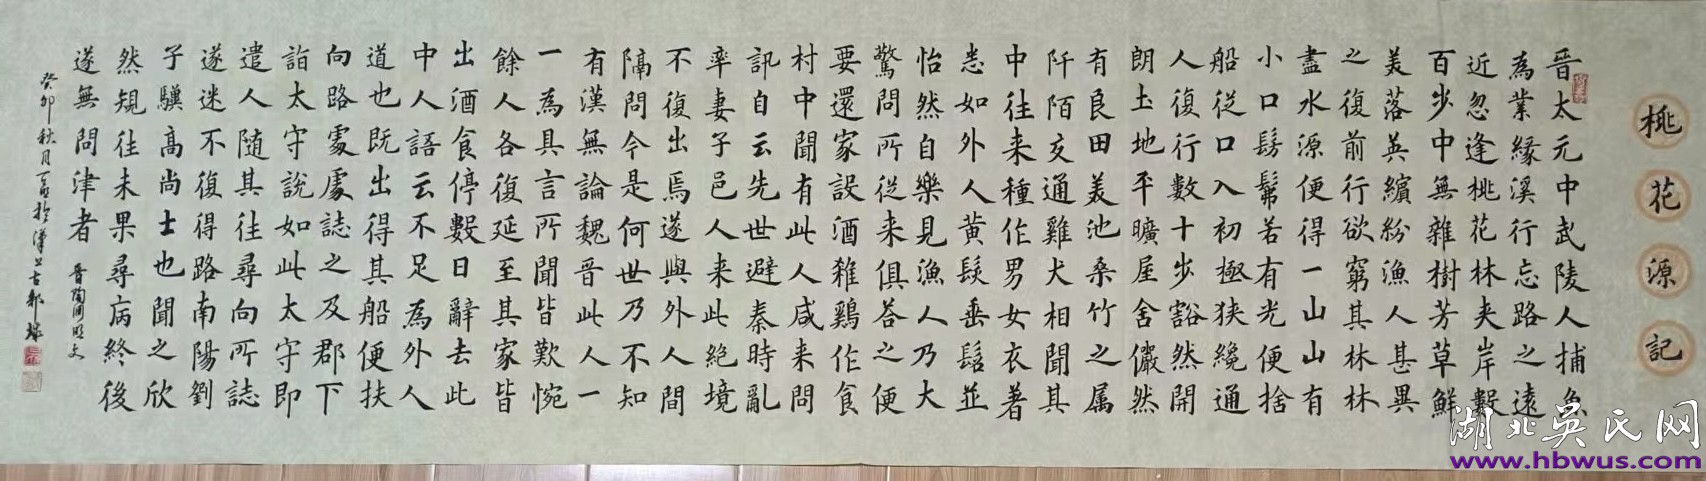 桃花源記
晋太元中武陵人捕魚
為業緣溪行忘路之遠
近忽逢桃花林夾岸數
百步中無雜樹芳草鮮
美落英繽紛漁人甚異
之復前行欲窮其林林
盡水源便得一山山有
小口髣髴若有光便捨
船從口入初極狹纔通
人復行數十步豁然開
朗土地平曠屋舍儼然
有良田美池桑竹之属
阡陌交通雞犬相聞其
中往来種作男女衣著
悉如外人黄髮垂髫並
怡然自樂見漁人乃大
驚問所從来俱荅之便
要還家設酒殺鷄作食
村中聞有此人咸来問
訊自云先世避秦時亂
率妻子邑人来此絶境
不復出焉遂與外人間
隔問今是何世乃不知
有漢無論魏晋此人一
一為具言所聞皆歎惋
餘人各復延至其家皆
出酒食停數日辭去此
中人語云不足為外人
道也既出得其船便扶
向路處處誌之及郡下
詣太守說如此太守即
遣人隨其往尋向所誌
遂迷不復得路南陽劉
子驥高尚士也聞之欣
然規往未果尋病終後
遂無問津者 晋陶渊明文
癸卯秋月書於漢上
湖北吳氏网
www.hbwus.com